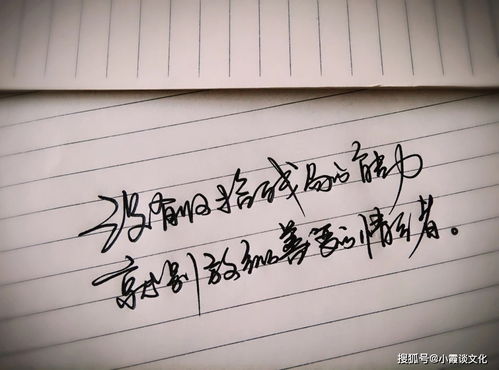 没有收拾残局的能力
就别放纵善变的情绪。
搜狐号@小霞谈文化